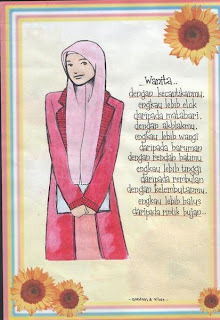 Wanita..
dengan kecantikanmu,
engkau lebih elok
daripada matahari.
dengan akhlakmu,
engkau lebih wangi
daripada haruman
dengan rendah hatimu
engkau lebih tinggi
daripada rembulan
dengan kelembutanmu,
engkau lebih halus
daripada rintik hujan..